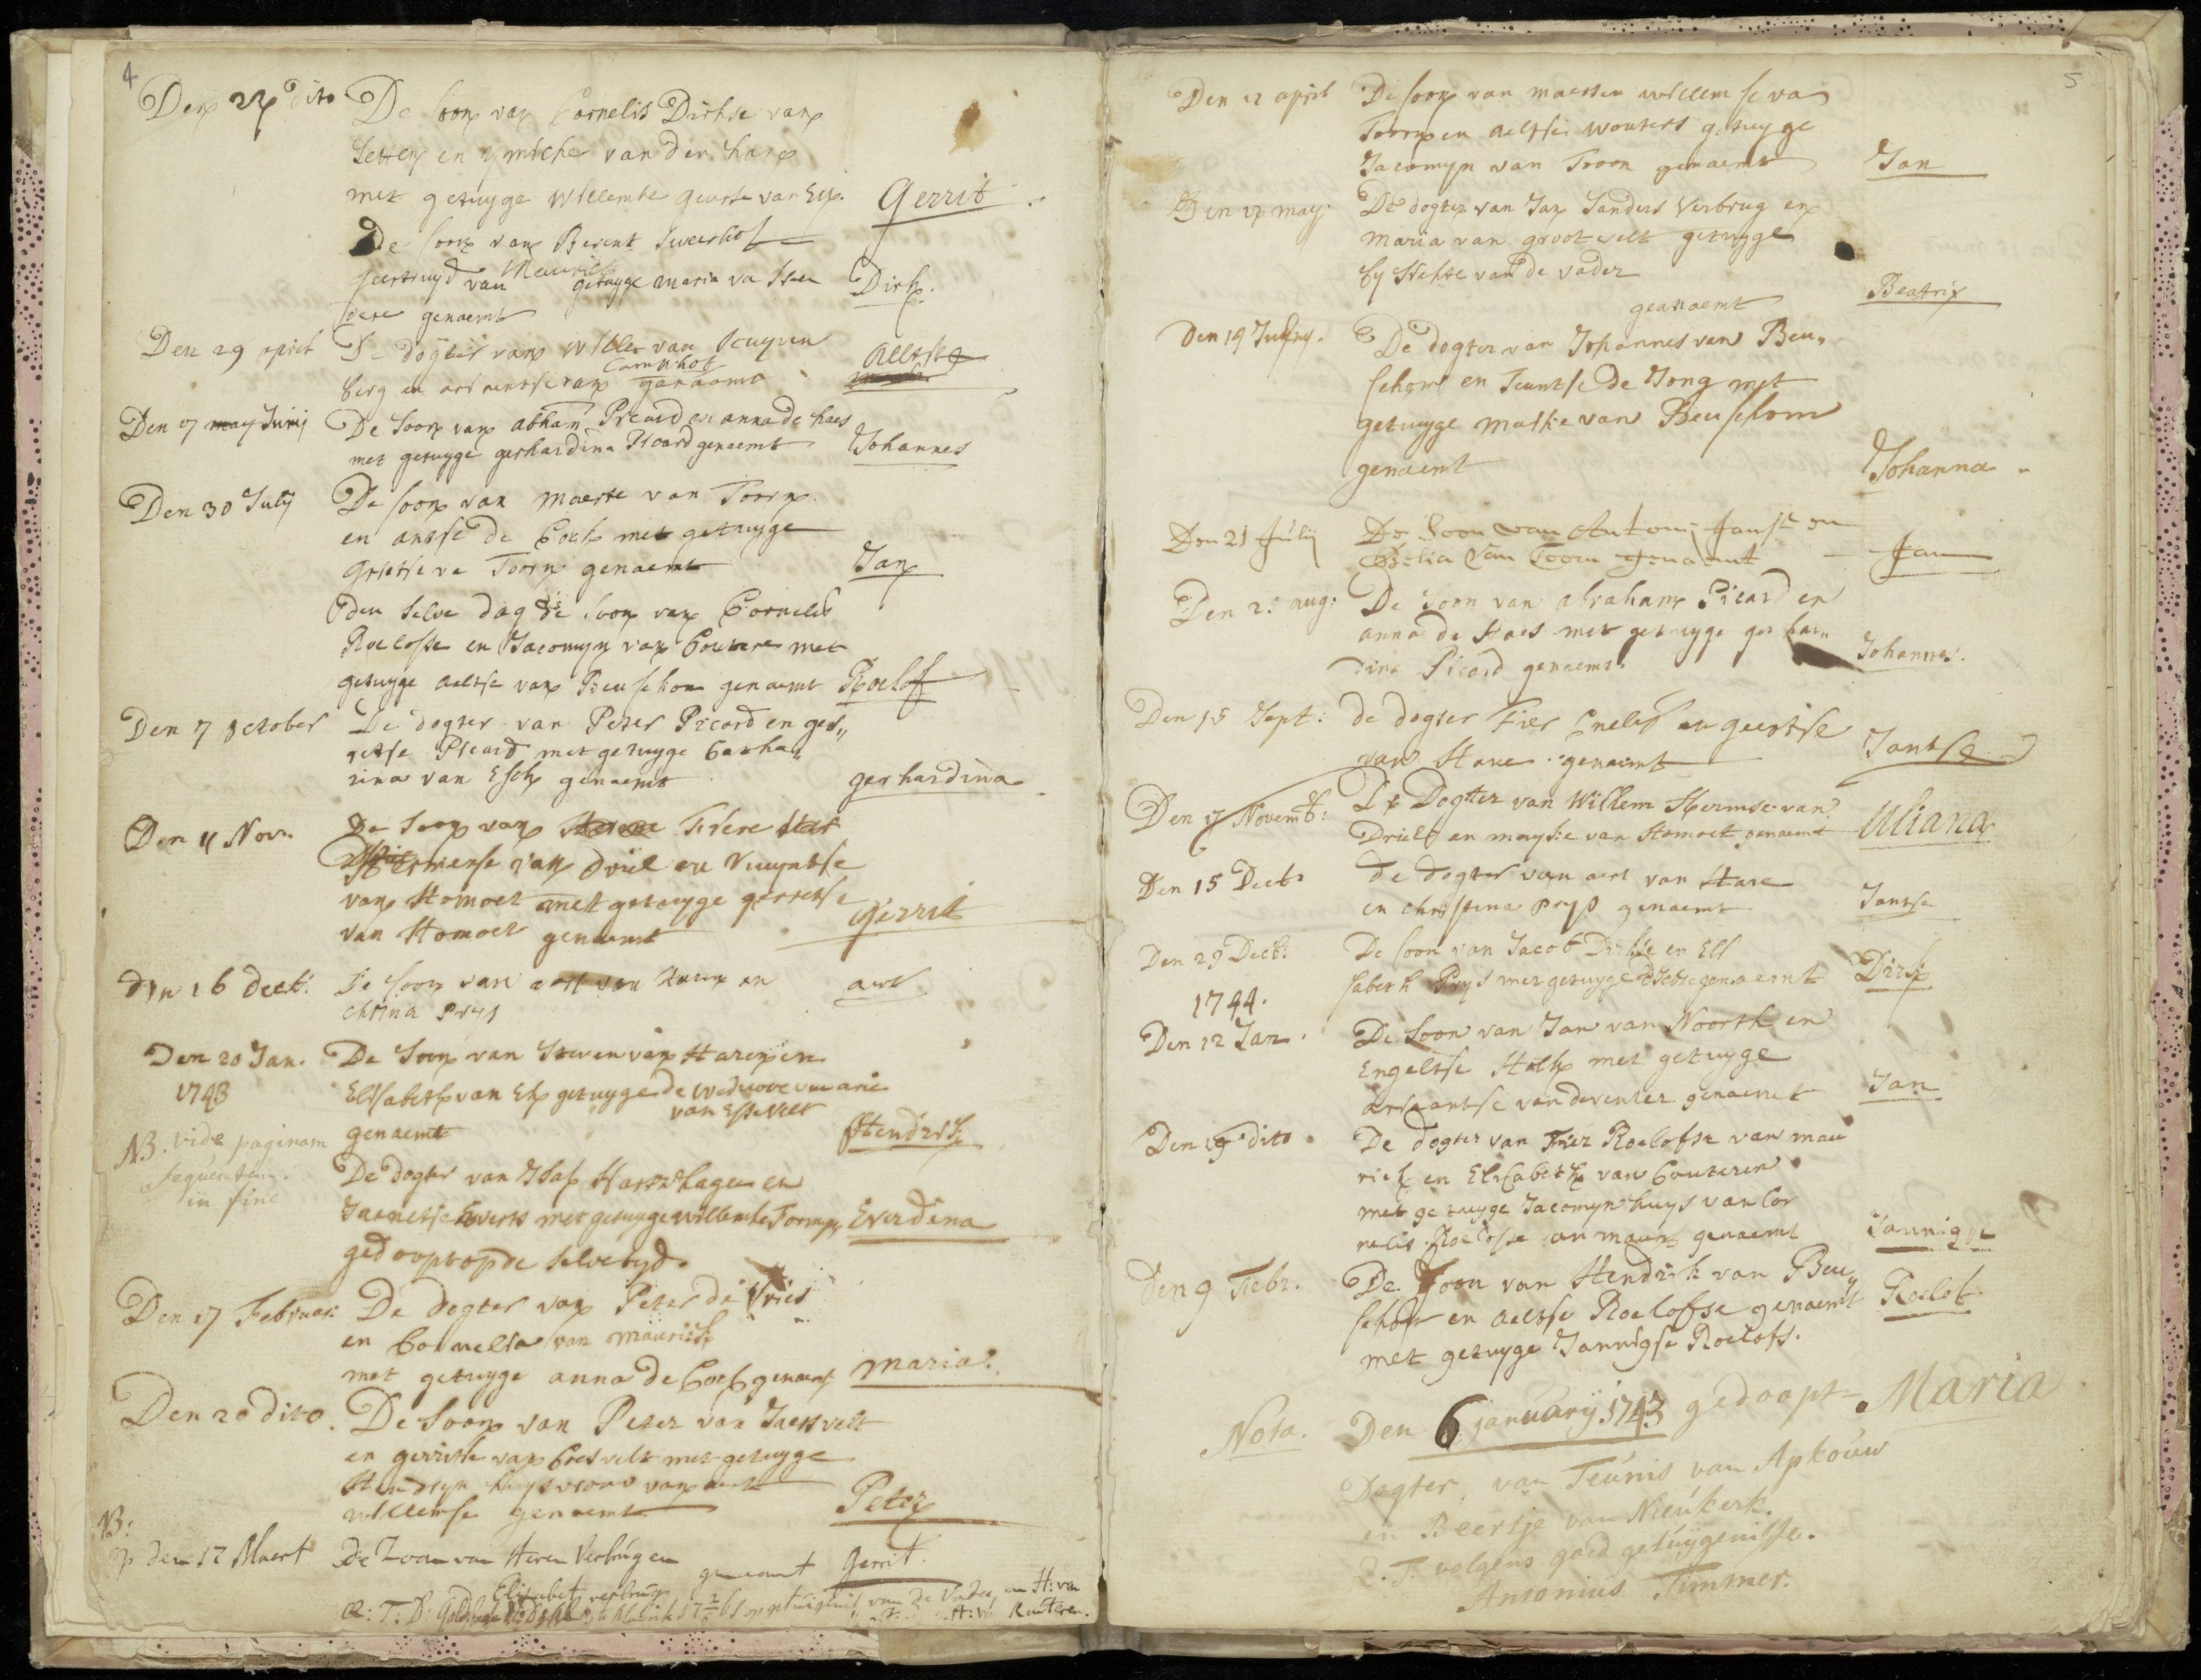 4
Den 22 dito De soon van Cornelis Dirkse van
Setten en ymiche van den ham
met getuyge willemke geurse van Eck. Gerrit
De soon van Berent sweerhof
geertruyd van Maurick getuyge maria va
dere genaemt Dirk.
Den 29 april De dogter van willem van
berg en van Camphof genaamt Aeltse
Den 07 may Junij De Soon van abham Picard en anna de haes
met getuyge gerhardina Picard genaemt Johannes
Den 30 July De soon van maerte van Toorn
en antse de Cock met getuyge
grietse va Toorn genaemt Jan
den selve dag de soon van Cornelis
Roelofse en Jacomyn van Couteren met
getuyge aeltse van Beusekom genaemt Roelof
Den 7 october De dogter van Peter Picard en ger„
retse Picard met getuyge Catha„
rina van Esch genaemt gerhardina
Den 11 Nov. De soon van Steven
Hermense van driel en
van Homoet met getuyge gerretse
van Homoet genaemt Gerrit
den 16 dect. De soon van aert van Haren en
chtina Prys aert
Den 20 Jan. De Soon van Steven van Haren en
1743 Elisabeth van Eck getuyge de weduwe van arie
van Essevelt
genaemt Hendrik
NB. vide paginam
sequentem.
in fine
De dogter van Isak Harthagen en
Jannetje Everts met getuyge willemke Tormyn Everdina
gedoopt op de selve tyd.
Den 17 Februar: De dogter van Peter de Vries
en Cornelia van maurick
met getuyge anna de Cock genaemt maria.
Den 20 dito. De Soon van Peter van Jaersvelt
en gerritse van Coesvelt met getuyge
Hendryn huysvrouw van aert
willemse genaemt Peter
NB:
op den 17 Maert de Zoon van Steven Verbrugen
Elisabet verbrug genaamt Gerrit.
op getuigenis van de Vader en H: van
Kouteren.
5
Den 12 april De soon van maerten willemse van
Toorn en aeltsie wouters getuyge
Jacomyn van Toorn genaemt Jan
Den 12 may. De dogter van Jan Sanders Verbrug en
maria van grootvelt getuyge
by Stekte van de vader
genaemt Beatrix
Den 19 July. De dogter van Johannes van Beu„
sekom en Teuntse de Jong met
getuyge maike van Beusekom
genaemt Johanna
Den 21 Julij De Soon van Antoni Janse en
Belia Van Toorn genaamt Jan
Den 25 aug: De soon van abraham Picard en
anna de Haes met getuyge ger har„
dina Picard genaemt Johannes.
Den 15 Sept: de dogter van Cnelis en geertse
van Haue genaemt Jantse
Den 17 Novemb: De Dogter van Willem Hermse van
Driel en maysie van Homoet genaemt Uliana
Den 15 Decb: De dogter van aert van Hare
en christina Prys genaemt Jantse
Den 29 Decb: De soon van Jacob Dirkse en Eli
sabeth Prys met getuyge genaemt Dirk
1744.
Den 12 Jan. De Soon van Jan van Noorth en
Engeltse Hack met getuyge
ariaantse van deventer genaemt Jan
Den 19 dito De dogter van Roelofse van mau
rick en Elisabeth van Couteren
met getuyge Jacomyn huys van Cor
nelis Roelofse van maurik genaemt Jannigse
Den 9 Febr. De soon van Hendrik van Beu„
sekom en aeltse Roelofse genaemt Roelof
met getuyge Jannigse Roelofs.
Nota. Den 6 january 1743 gedoopt Maria
Dogter van Teunis van Apkouw
en Beertje van Nieukerk.
q. T. volgens goed getuygenisse.
Antonius Timmer.